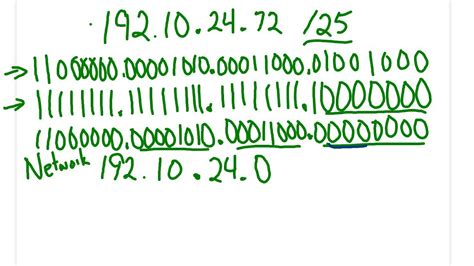 192.10.24.72 /25
→11000000.00001010.00011000.01001000
→11111111.11111111.11111111.10000000
11000000.00001010.00011000.00000000
Network 192.10.24.0